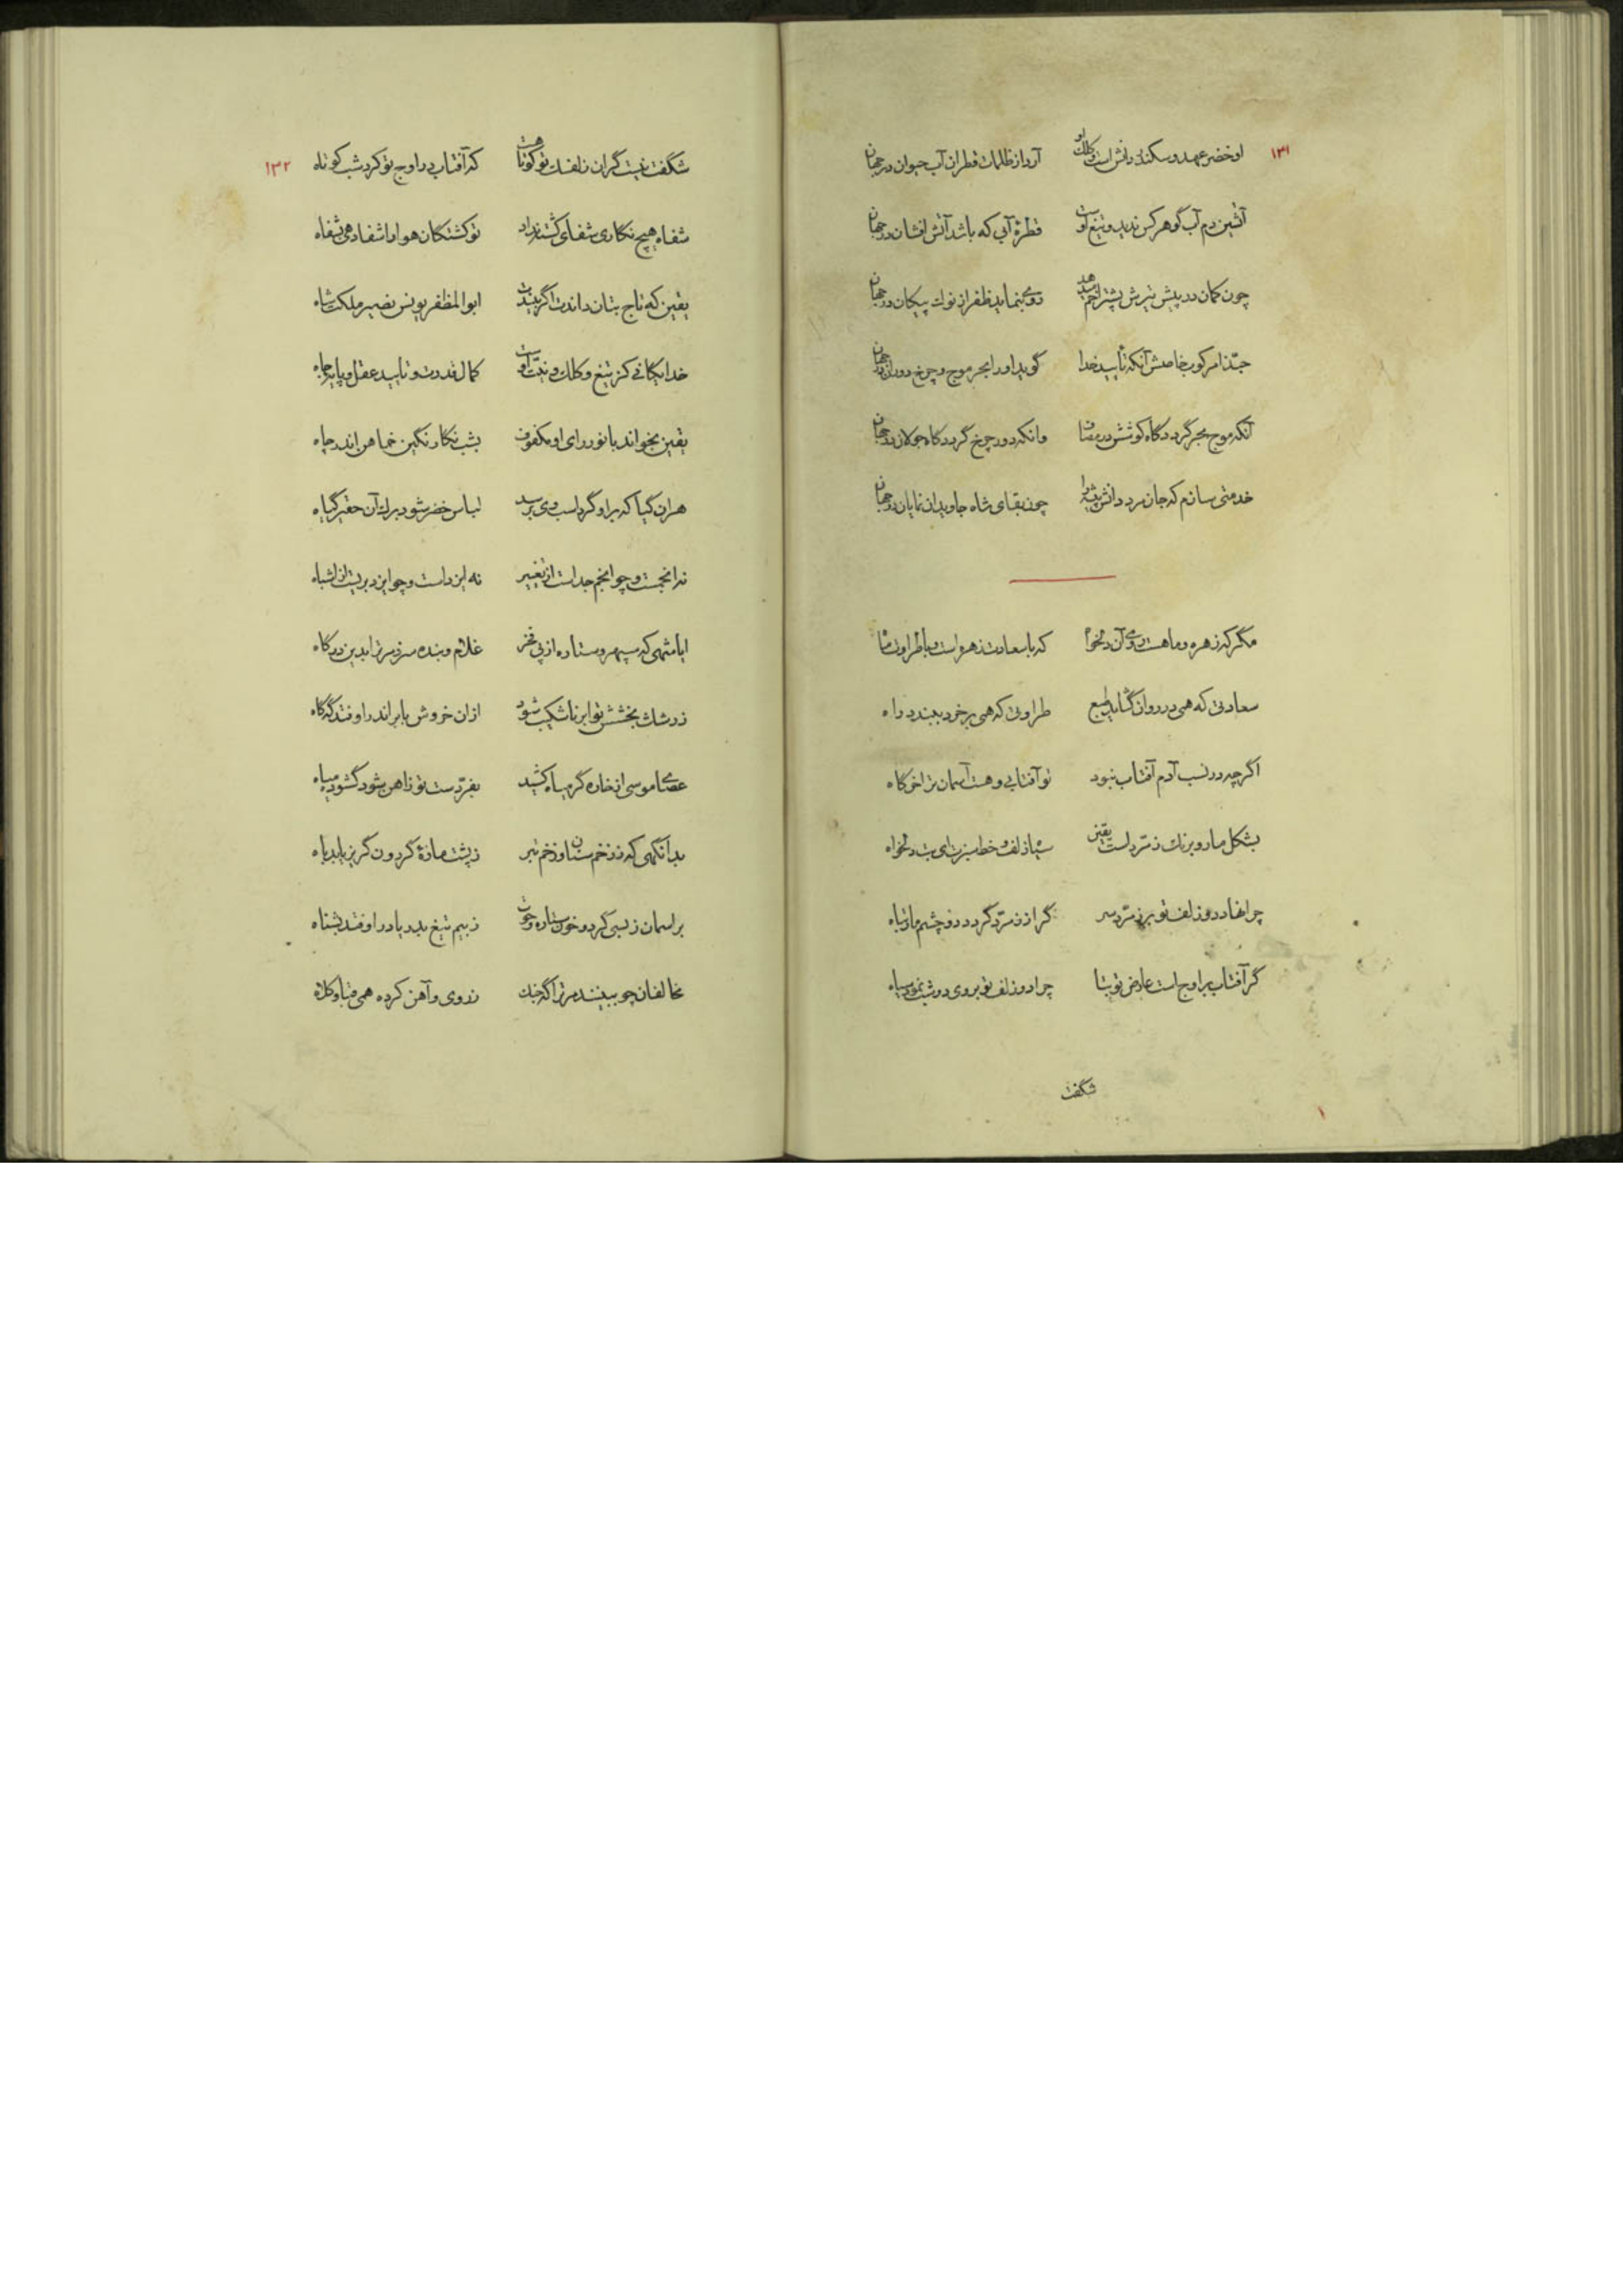 ۱۳۱
او خضر عهد و سکندر دانش است و کلک او آرد از ظلمات قطران آب حیوان در جهان
آتشین دم آب گوهر کس ندید و تیغ اوست قطرهٔ آبی که باشد آتش افشان در جهان
چون کمان در پیش تیرش پشت را خم میدهد روی بنماید ظفر از نوک پیکان در جهان
حبّذا مرکوب خاصش آنکه تأیید خدا گوید او را بحر موج و چرخ دوران در جهان
آنکه موج بحر گردد گاه کوشش در مصاف وانکه دور چرخ گردد گاه جولان در جهان
خدمتی سازم که جان مرد دانش پیشه را چون بقای شاه جاویدان نمایان در جهان
مگر که زهره و ماهست روی آن دلخواه که با سعادت زهره است و با طراوت ماه
سعادتی که همی در روان گشاید طبع طراوتی که همی بر خرد ببندد راه
اگر چه در نسب آدم آفتاب نبود تو آفتابی و هست آسمان ترا خرگاه
بشکل مار و برنک زمرّد است یقین سیاه زلف و خط سبزت ای بت دلخواه
چرا نهاد دو زلف تو بر زمرّد سر گر از زمرّد گردد دو چشم مار تباه
گر آفتاب بر اوج است عارض تو بتا چرا دو زلف تو بر وی دو شب نمود سیاه
شگفت
۱۳۲
شگفت نیست گر ان زلفک تو کوتاهست که آفتاب در اوج تو کرد شب کوتاه
شفاه هیچ نگاری شفای کشته نداد تو کشتگان هوا را شفا دهی بشفاه
یقین که تاج بتان داندت اگر بیندت ابوالمظفر یونس نصیر ملکت شاه
خدایگانی کز تیغ و کلک و نیت اوست کمال قدرت و تایید عقل و پایهٔ جاه
یقین بخواند با نور رای او مکفوف بشب نگار نگین خماهن اندر چاه
هران گیا که بر او گرد اسب وی برسد لباس خضر شود برک آن حقیر گیاه
نه انجمست و چو انجم جداست از تغییر نه ایزداست و چو ایزد بریست از اشباه
ایا شهی که سپهر و ستاره از پی فخر غلام و بنده سزد مر ترا بدین درگاه
ز رشک بخشش تو ابر ناشکیب شود ازان خروش بابر اندر اوفتد گه گاه
عصای موسی از خاره گر میاه کشید بفرّ دست تو ز اهن شود گشوده میاه
بدانگهی که ز زخم سنان و زخم تیر ز پشت مازهٔ گردون گریز یابد باه
بر اسمان ز بسی گرد و خون ستاره و حوت ز بیم تیغ بدریا در اوفتد بشناه
مخالفان چو ببینند مر ترا گه جنک ز روی و آهن کرده همی قبا و کلاه